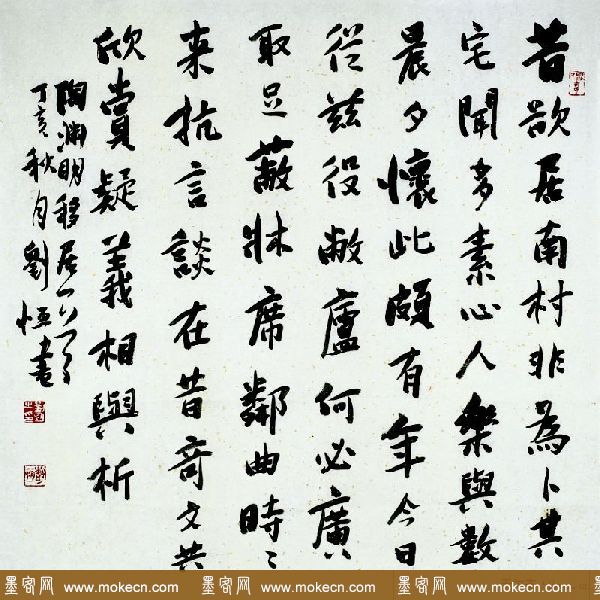 昔欲居南村非為卜其
宅聞多素心人樂與數
晨夕懷此頗有年今日
從茲役敝廬何必廣
取足蔽牀席鄰曲時〻
来抗言談在昔奇文共
欣賞疑義相與析
陶淵明移居一首
丁亥秋月劉恒書
墨客网 www.mokecn.com 墨客网 www.mokecn.com 墨客网 www.mokecn.com